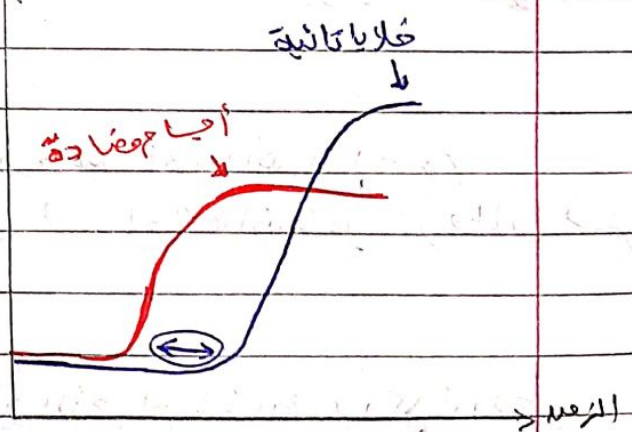 خلايا تائية
أجسام مضادة
الزمن